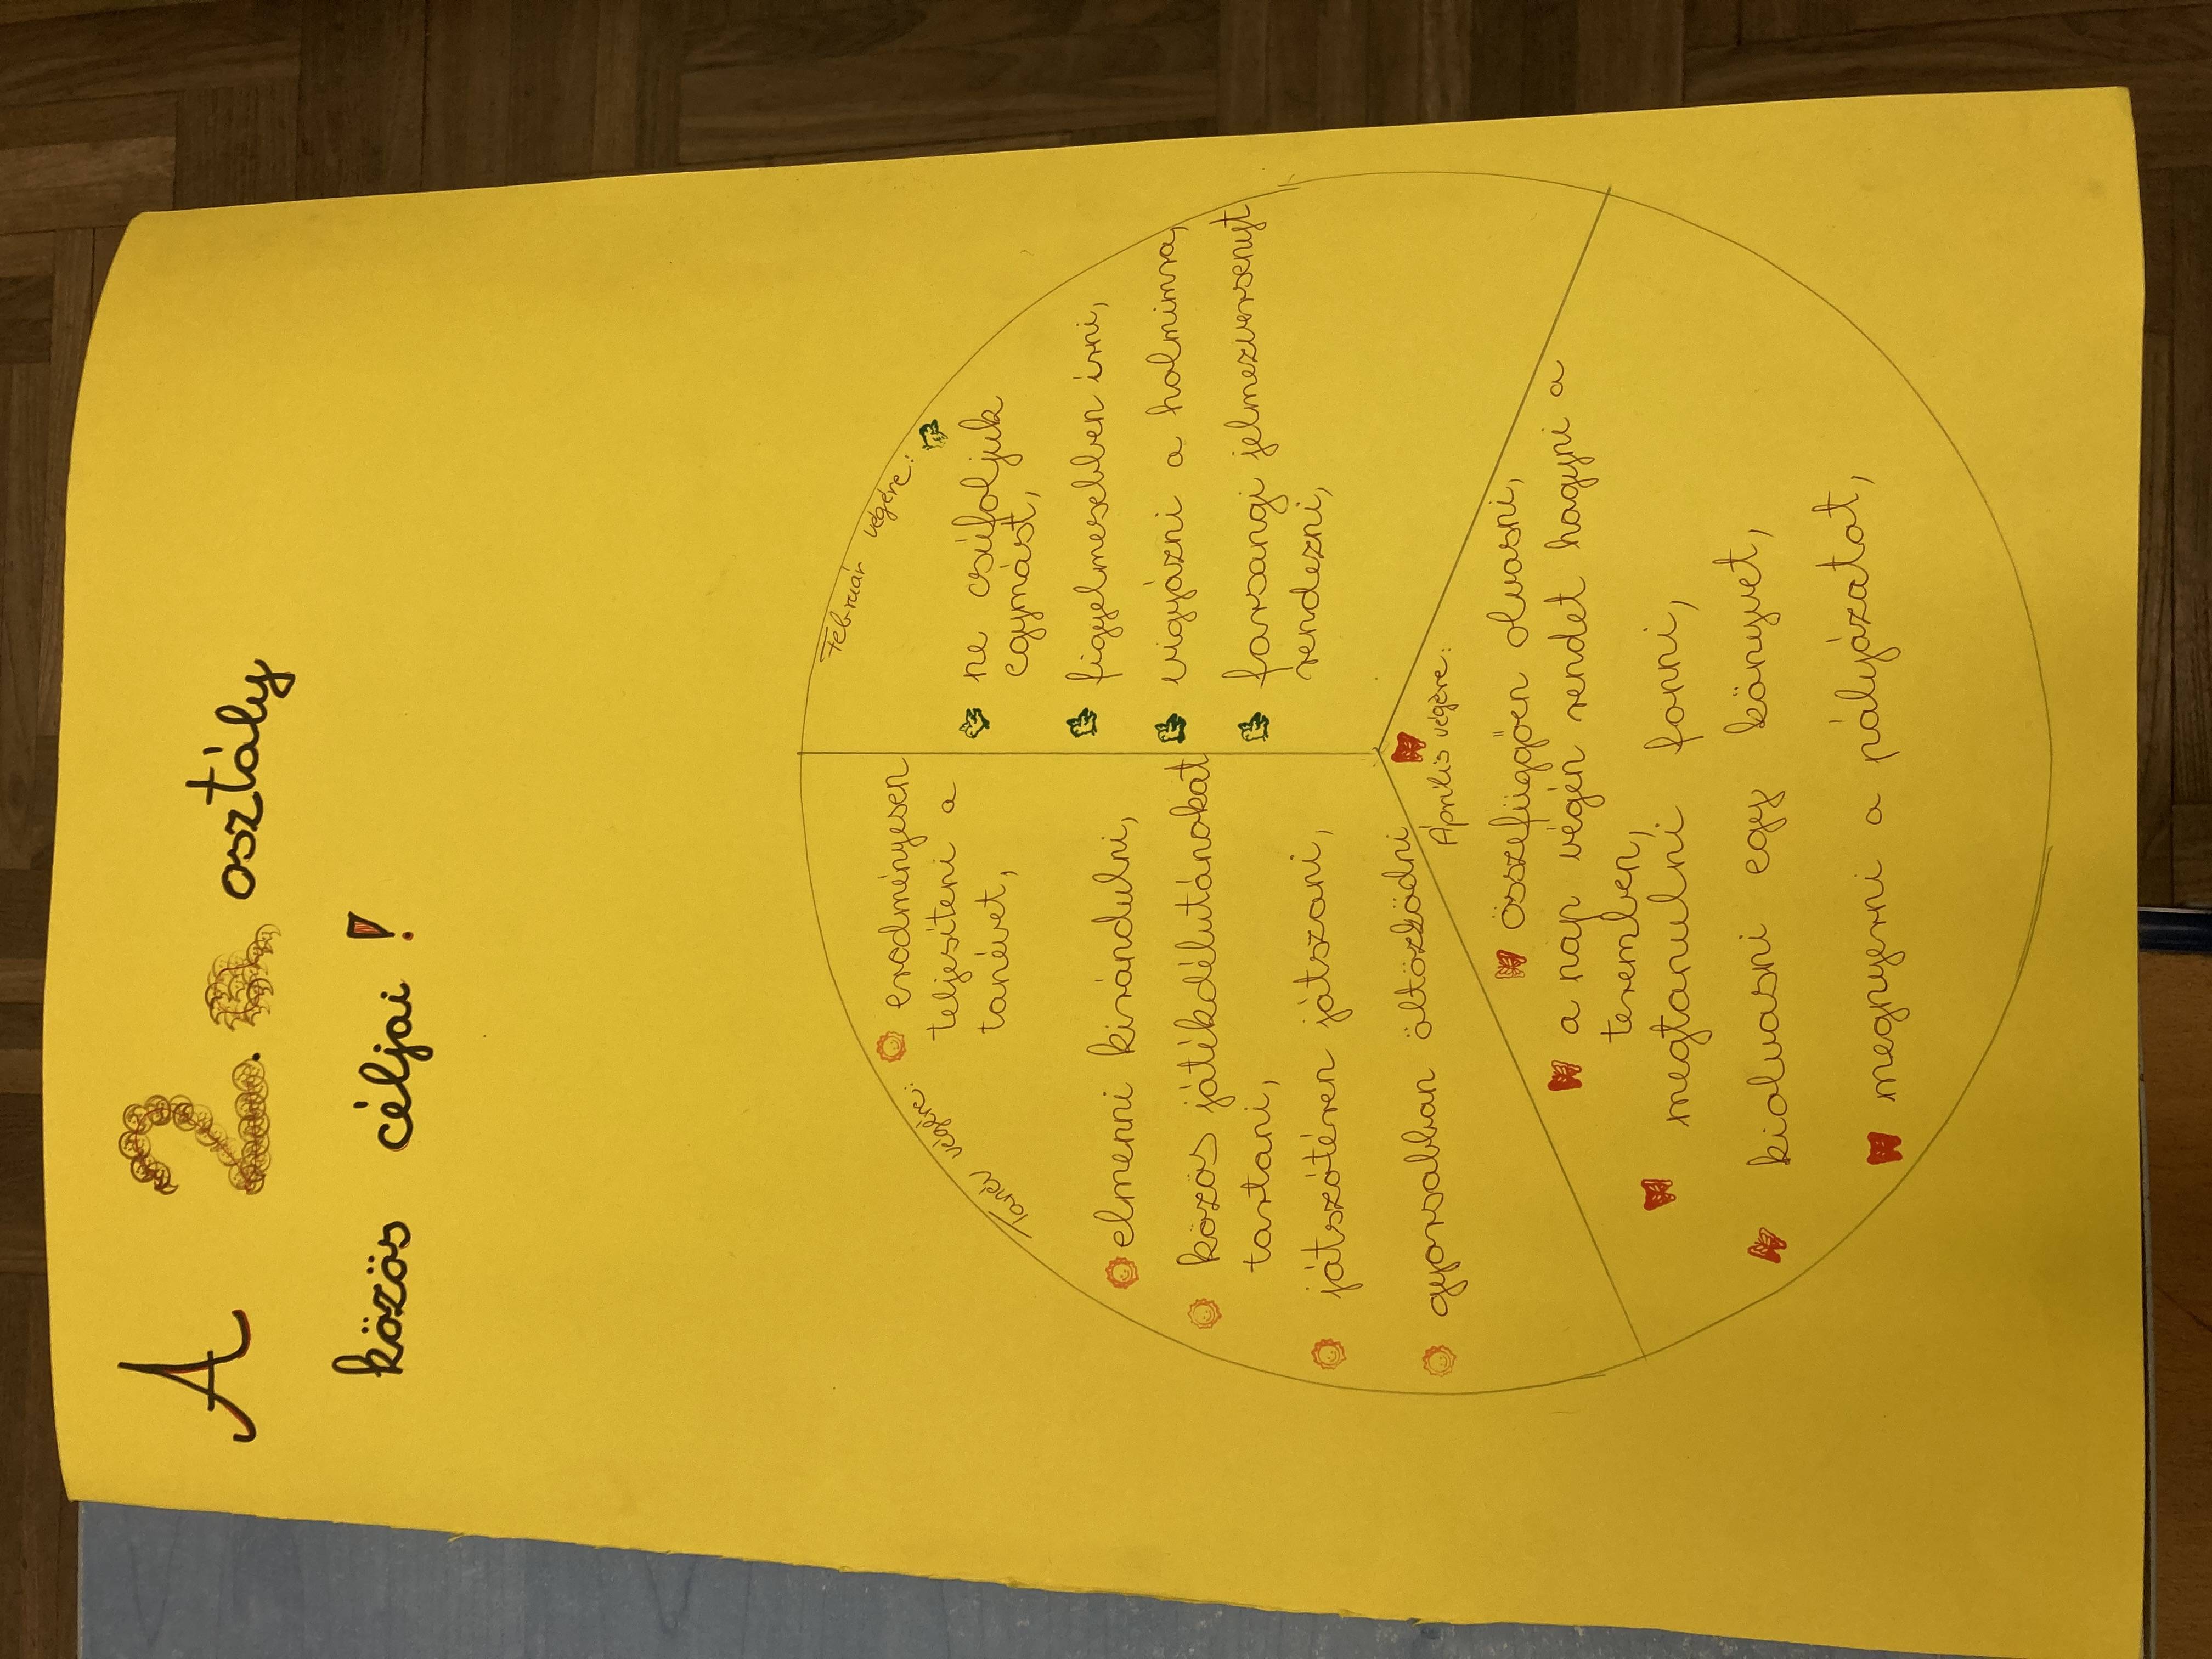 A 2. osztály
közös céljai!
Február végére:
ne csúfoljuk
egymást,
figyelmesebben írni,
vigyázni a holmimra,
farsangi jelmezversenyt
rendezni,
Április végére:
összefügően olvasni,
a nap végén rendet hagyni a
teremben,
megtanulni fonni,
kiolvasni egy könyvet,
megnyerni a pályázatot,
Tanév végére:
eredményesen
teljesíteni a
tanévet,
elmenni kirándulni,
közös játékdélutánokat
tartani,
játszótéren játszani,
gyorsabban öltözködni